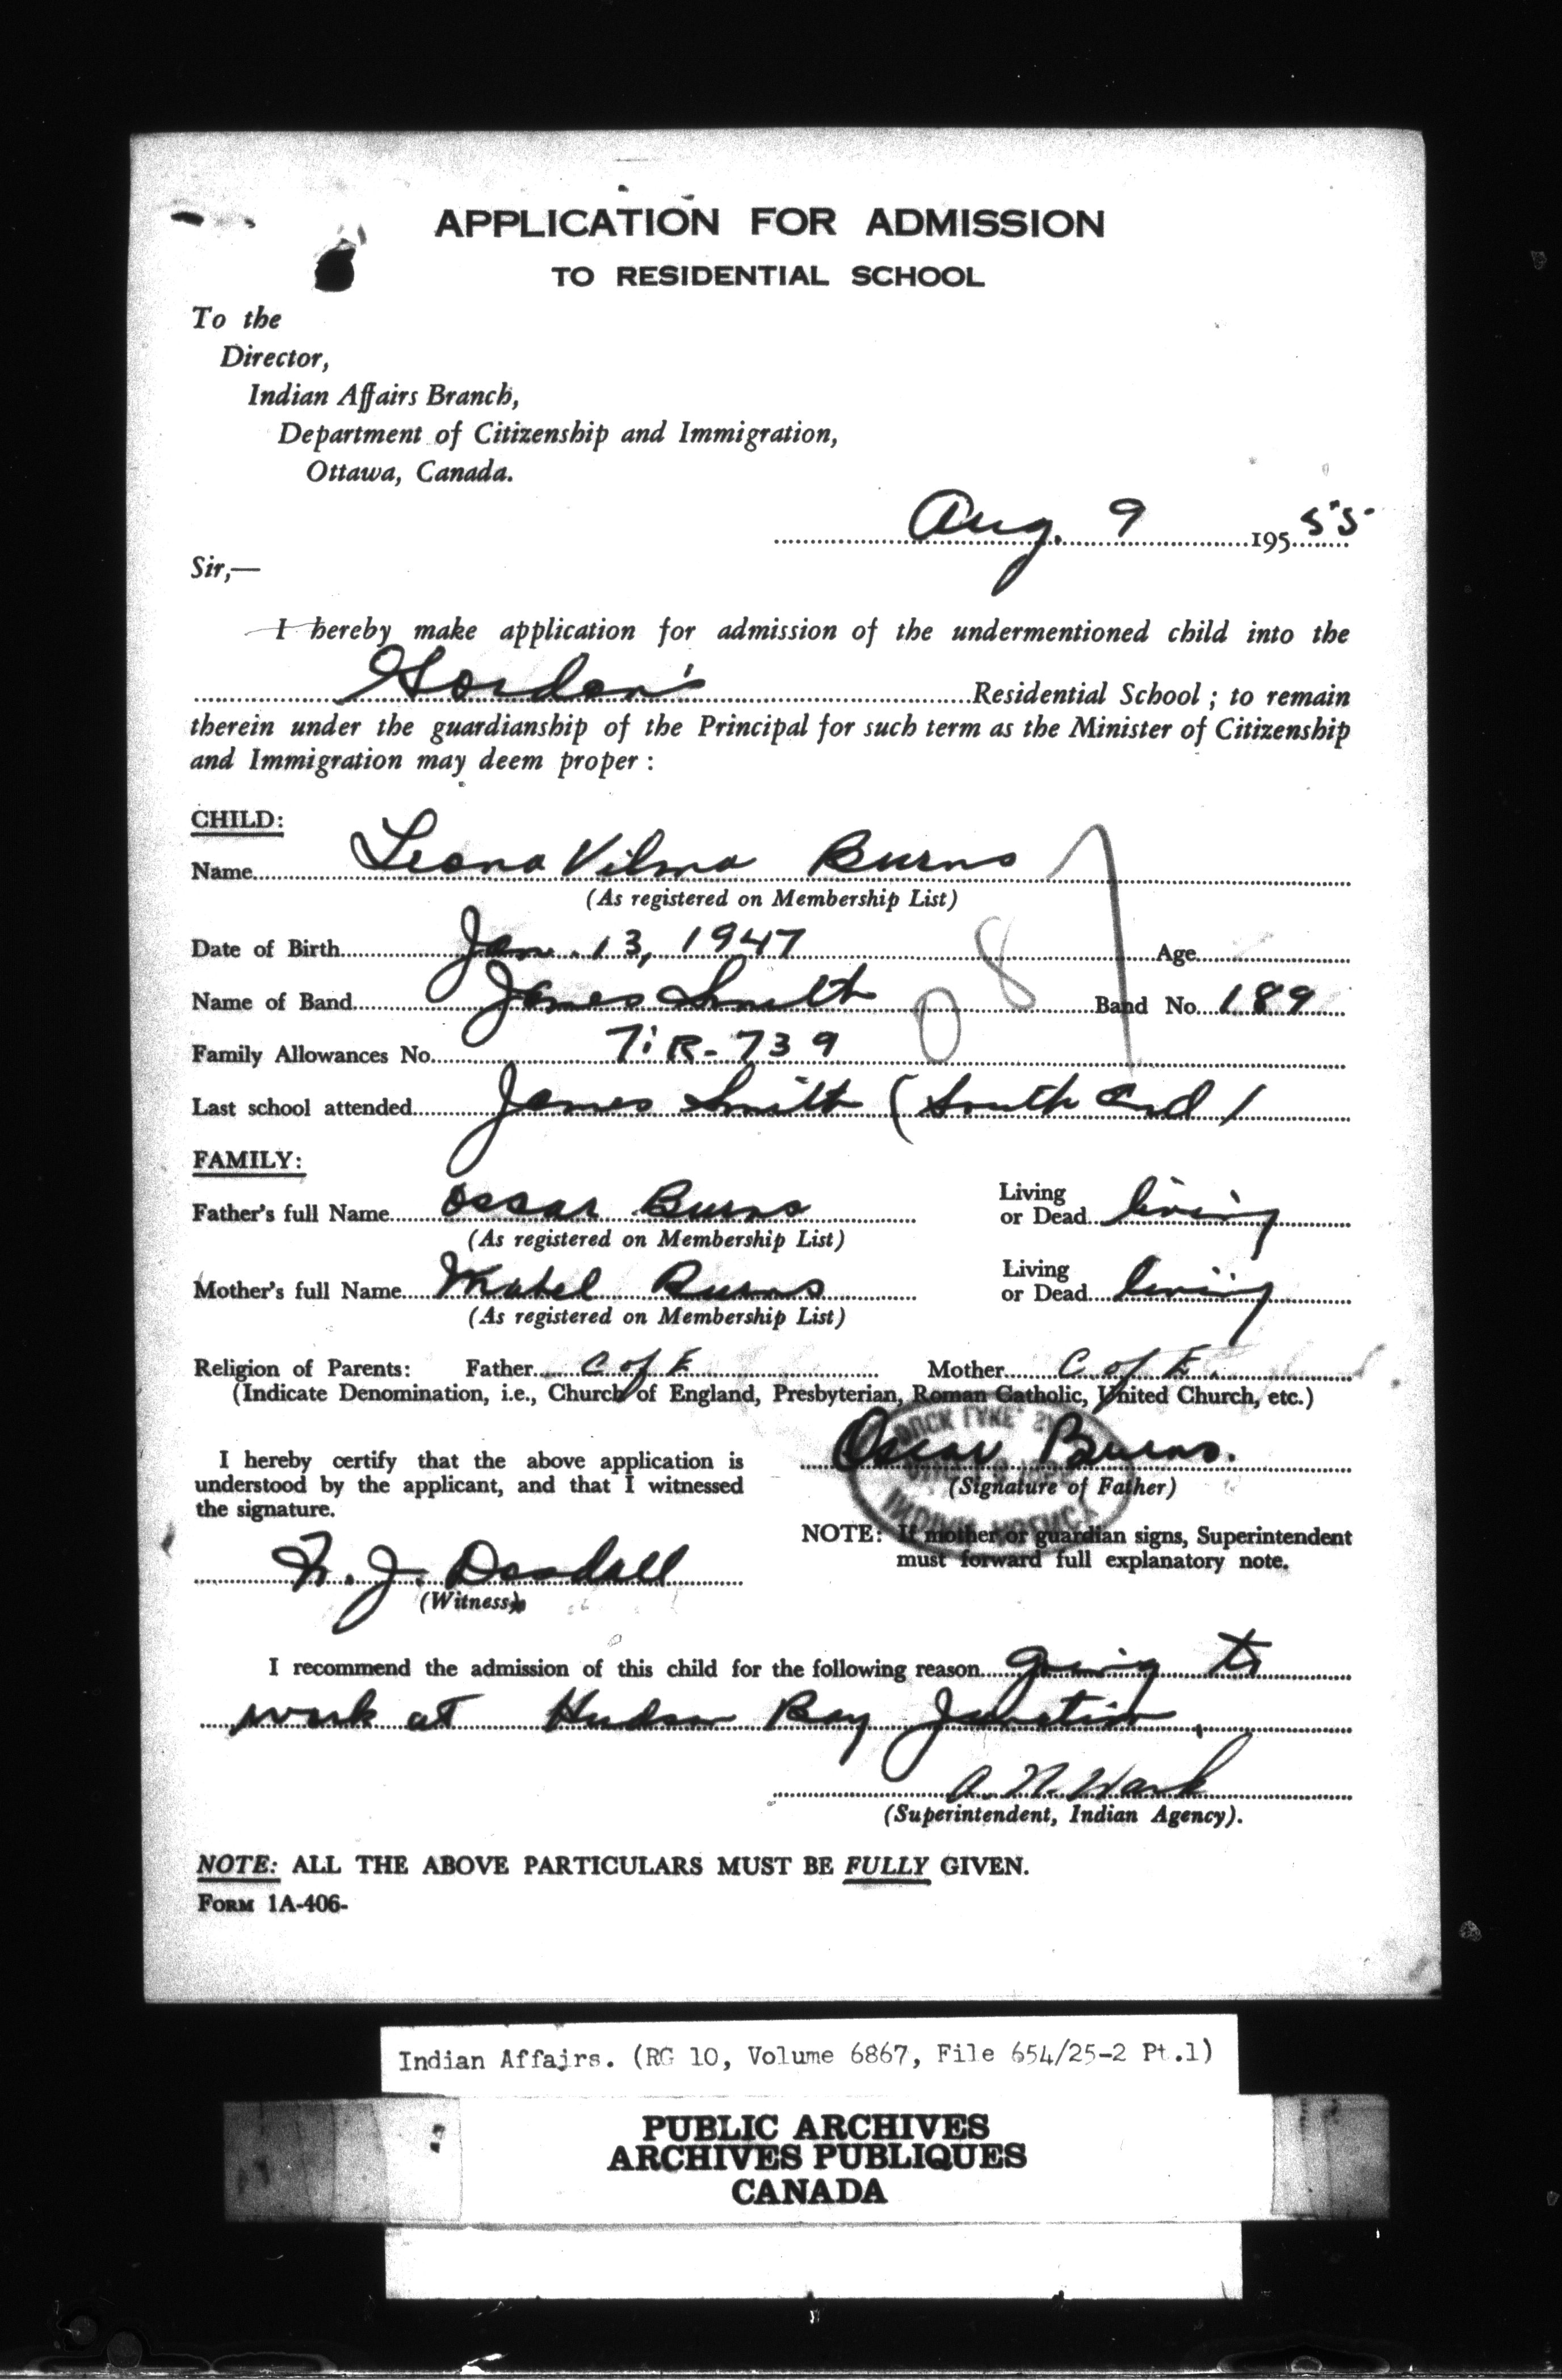 APPLICATION FOR ADMISSION
TO RESIDENTIAL SCHOOL
To the
Director,
Indian Affairs Branch,
Department of Citizenship and Immigration,
Ottawa, Canada.
Aug. 9 195 55
Sir,—
I hereby make application for admission of the undermentioned child into the
Gordon's Residential School ; to remain
therein under the guardianship of the Principal for such term as the Minister of Citizenship
and Immigration may deem proper :
CHILD:
Name Leona Vilma Burns
(As registered on Membership List)
Date of Birth Jan. 13, 1947 Age
Name of Band James Smith Band No. 189
087
Family Allowances No. 7iR-739
Last school attended James Smith (South End)
FAMILY:
Father's full Name Oscar Burns Living or Dead living
(As registered on Membership List)
Mother's full Name Mabel Burns Living or Dead living
(As registered on Membership List)
Religion of Parents: Father C of E Mother C of E.
(Indicate Denomination, i.e., Church of England, Presbyterian, Roman Catholic, United Church, etc.)
Oscar Burns.
(Signature of Father)
I hereby certify that the above application is
understood by the applicant, and that I witnessed
the signature.
NOTE: If mother or guardian signs, Superintendent
must forward full explanatory note.
J.
(Witness)
I recommend the admission of this child for the following reason going to
work at Hudson Bay Junction.
A. N. Wark
(Superintendent, Indian Agency).
NOTE: ALL THE ABOVE PARTICULARS MUST BE FULLY GIVEN.
FORM 1A-406-
Indian Affairs. (RG 10, Volume 6867, File 654/25-2 Pt.1)
PUBLIC ARCHIVES
ARCHIVES PUBLIQUES
CANADA